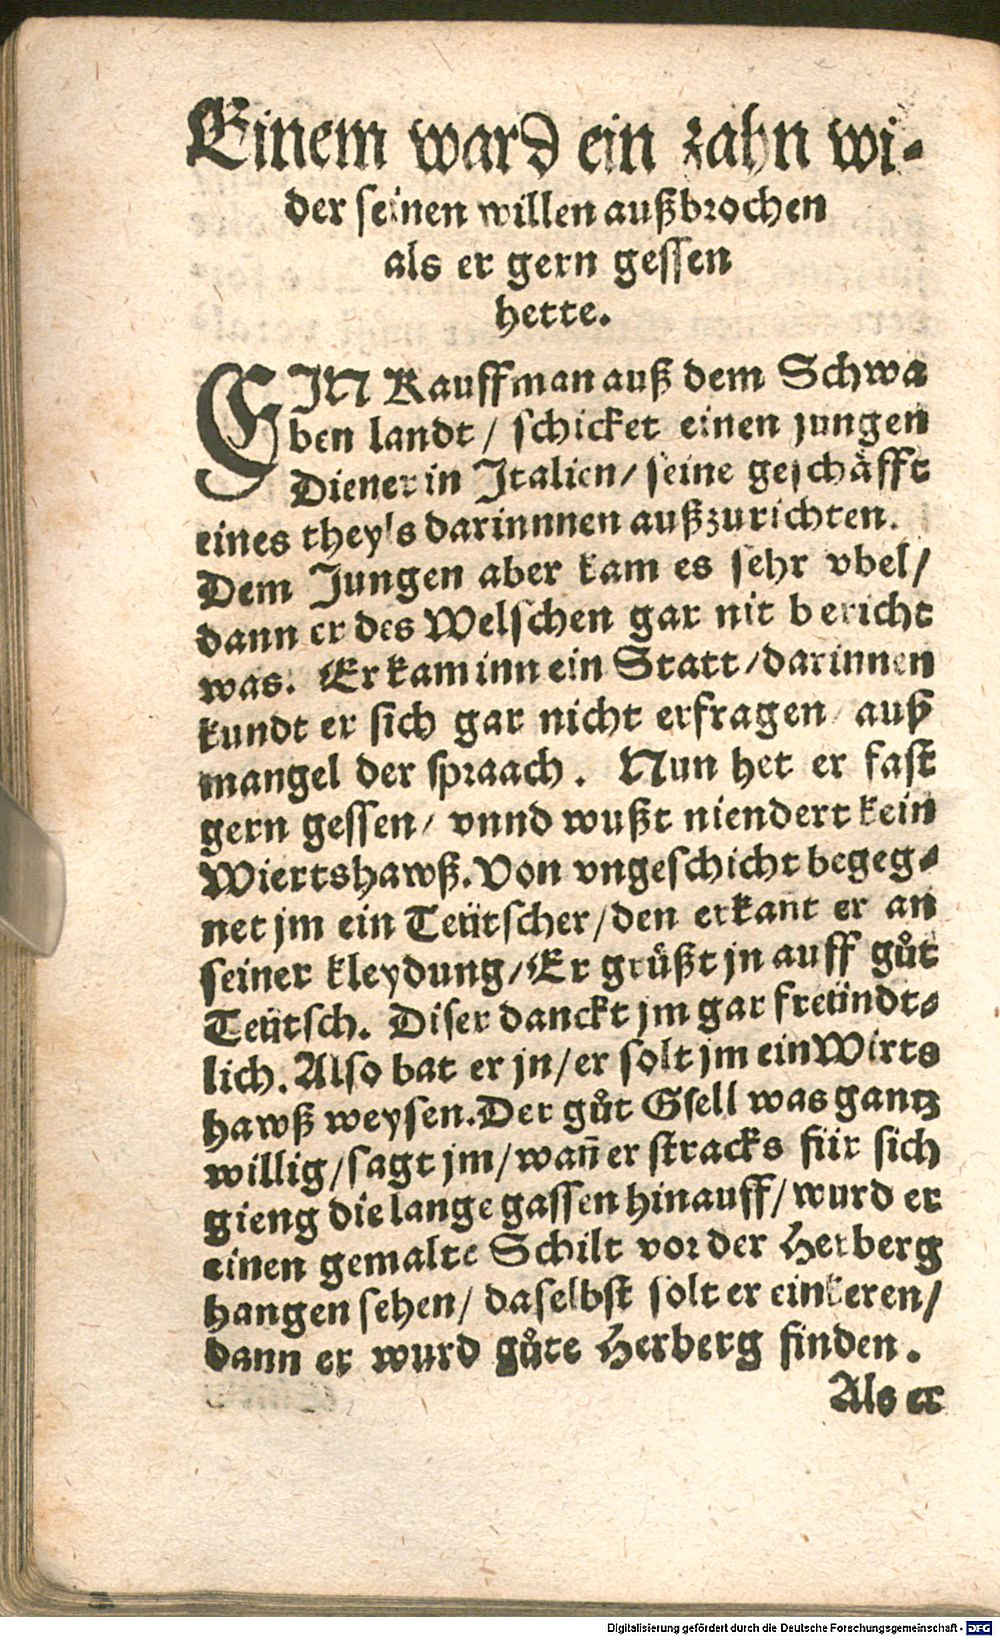 Einem ward ein zahn wi-
der seinen willen außbrochen
als er gern gessen
hette.
EIN Kauffman auß dem Schwa
ben landt / schicket einen jungen
Diener in Italien / seine geschäfft
eines theyls darinnnen außzurichten.
Dem Jungen aber kam es sehr vbel /
dann er des Welschen gar nit bericht
was. Er kam inn ein Statt / darinnen
kundt er sich gar nicht erfragen / auß
mangel der spraach. Nun het er fast
gern gessen / vnnd wußt niendert kein
Wiertshawß. Von vngeschicht begeg-
net jm ein Teütscher / den erkant er an
seiner kleydung / Er grüßt jn auff gůt
Teütsch. Diser danckt jm gar freündt-
lich. Also bat er jn / er solt jm ein Wirts
hawß weysen. Der gůt Gsell was gantz
willig / sagt jm / wañ er stracks für sich
gieng die lange gassen hinauff / wurd er
einen gemalte Schilt vor der Herberg
hangen sehen / daselbst solt er einkeren /
dann er wurd gůte Herberg finden.
Als er
Digitalisierung gefördert durch die Deutsche Forschungsgemeinschaft - DFG